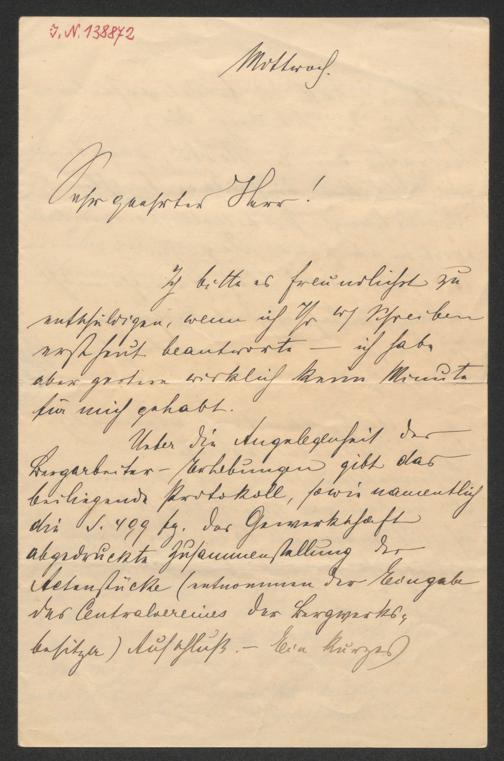 J. N. 138872
Mittwoch.
Sehr geehrter Herr!
Ich bitte es freundlichst zu
entschuldigen, wenn ich Ihr w/ Schreiben
erst heut beantworte – ich habe
aber gestern wirklich keine Minute
für mich gehabt.
Ueber die Angelegenheit der
Bergarbeiter-Erhebungen gibt das
beiliegende Protokoll, sowie namentlich
die S. 409 fg. der Gewerkschaft
abgedruckte Zusammenstellung der
Actenstücke (entnommen der Eingabe
des Centralvereines der Bergwerks-
besitzer) Aufschluß. – Ein kurzes